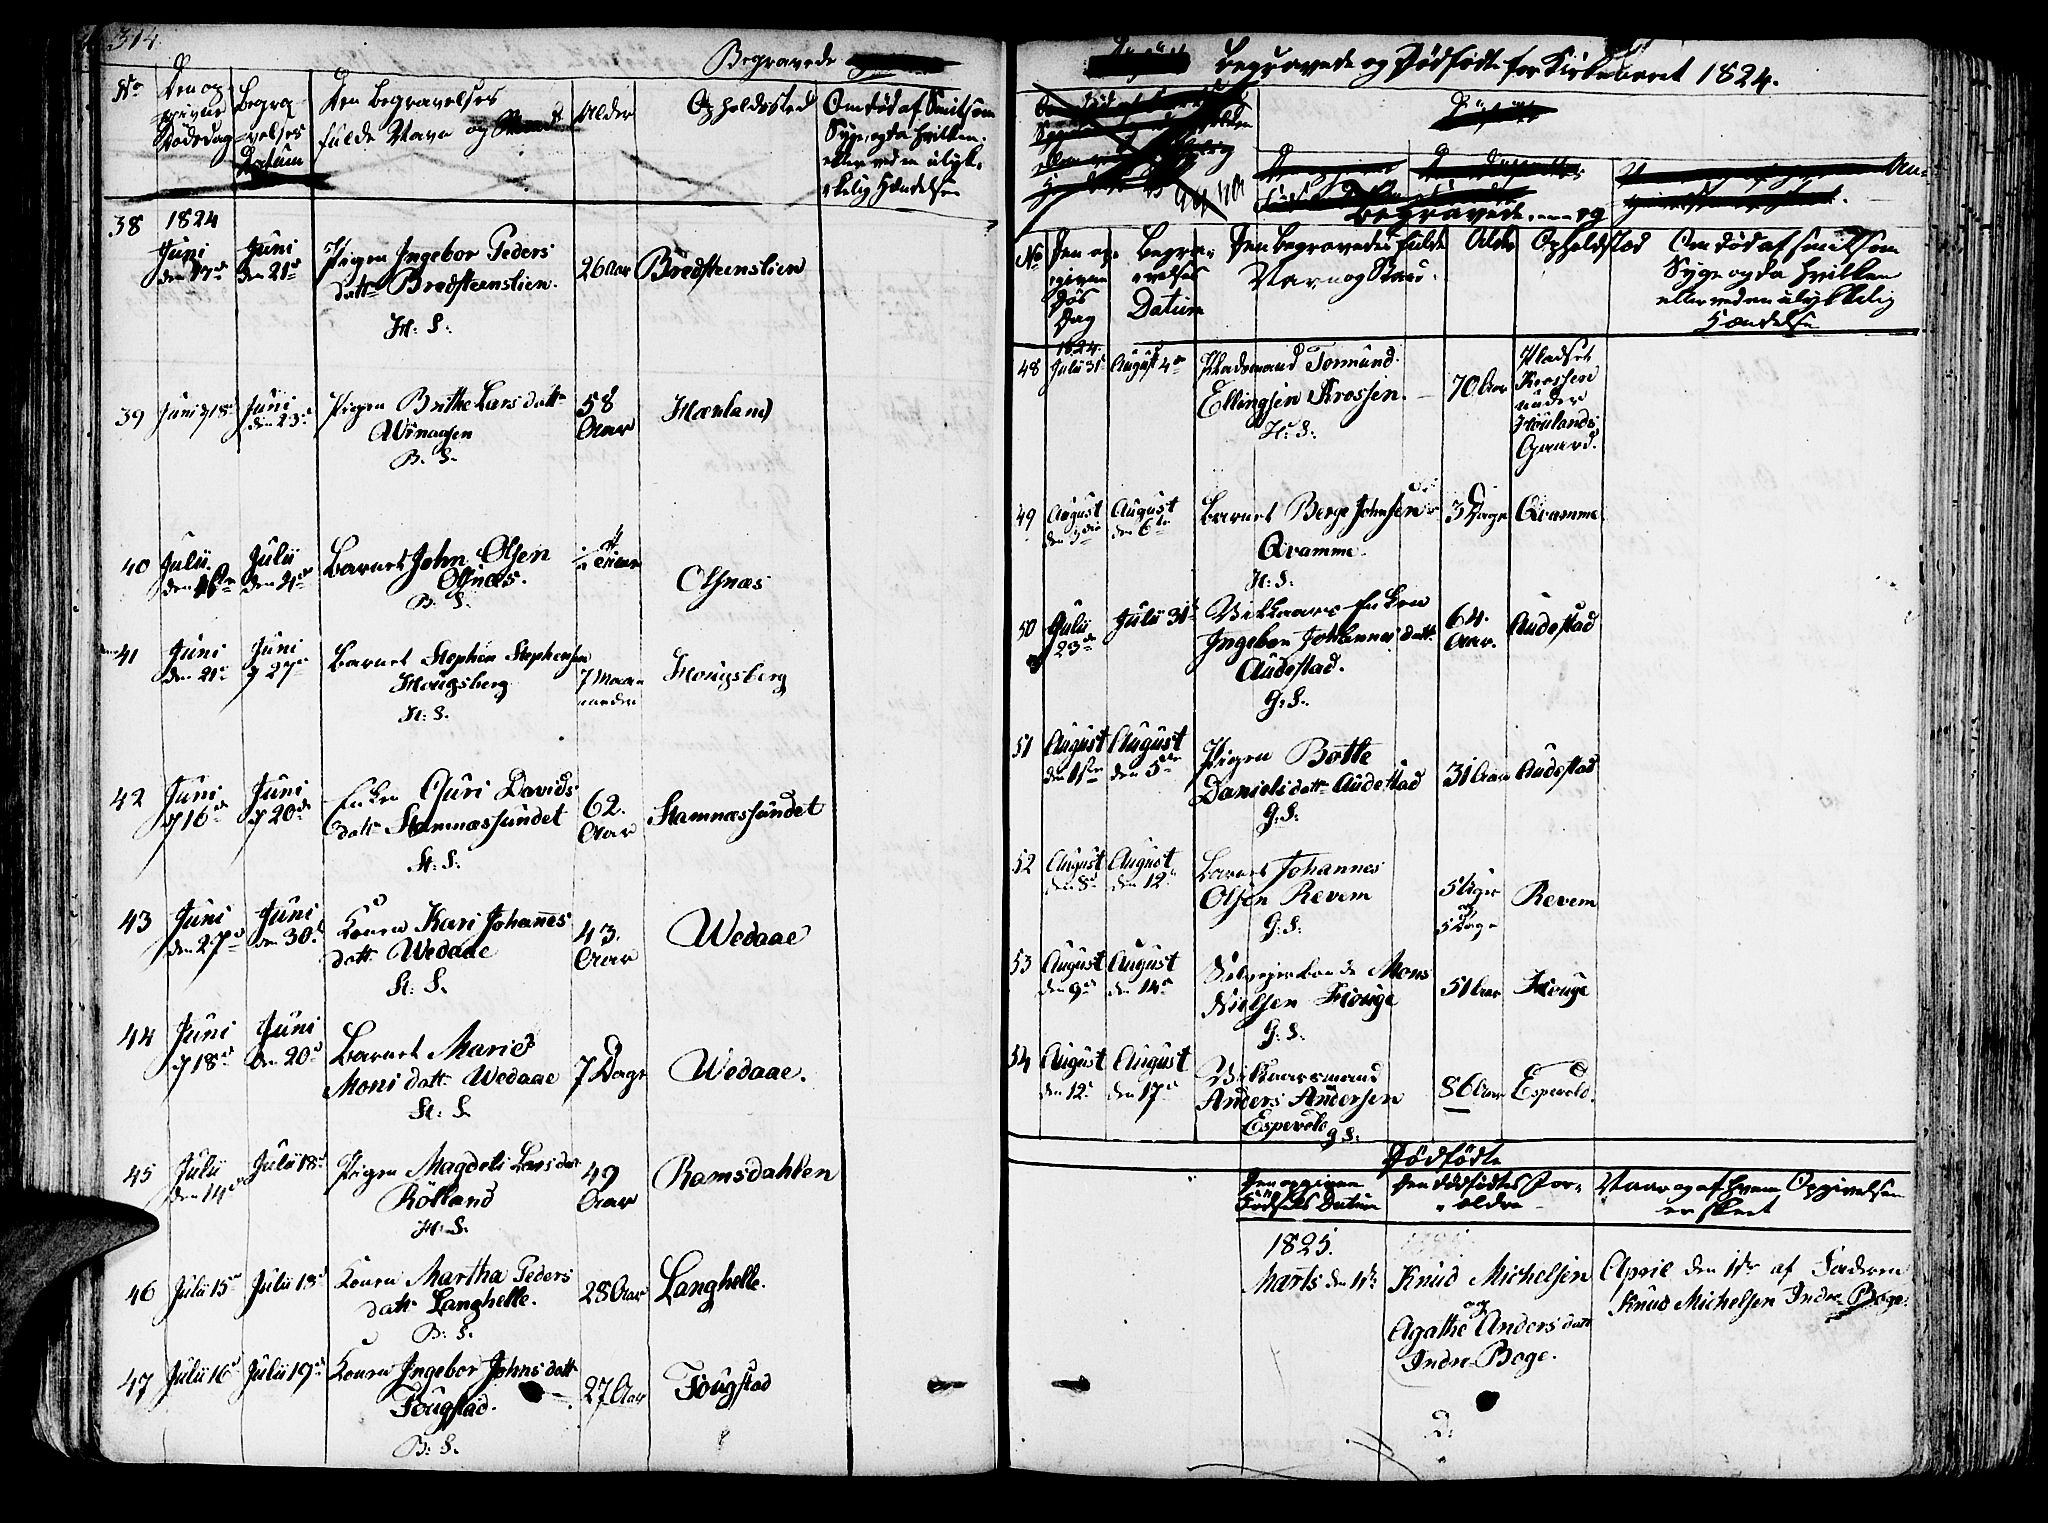 314.
Begravede
No
Den op-
givne
Dødsdag
Begra-
velses
Datum
Den begravedes
fulde Navn og Stand
Alder
Opholdssted
Om død af Smitsom
Syge, og da hvilken,
eller ved en ulyk-
kelig Hændelse
38
1824
Juni
den 17de
Juni
den 21de
Pigen Ingebor Peders
datter Bredsteenslien.
H: S:
26 Aar
Bredsteenslien
39
Juni d 18de
Juni
den 23de
Pigen Brithe Lars datter
Winaasen
B. S.
58
Aar
Hærland
40
Julii
Julii
den 21de
Barnet John Olsen
Olsnæs.
B. S.
Olsnæs
41
Juni
den 21de
Juni
d 27de
Barnet Stephen Stephensen
Hougsberg
H: S.
7 Maa-
neder
Hougsberg
42
Juni
d 16de
Juni
d 20de
Enken Guri Davids
datter Stamnæssundet
St: S:
62.
Aar
Stamnæssundet
43
Juni
den 27de
Juni
den 30te
Konen Kari Johannes
datt. Wedaae
St: S.
43.
Aar
Wedaae
44
Juni
d 18de
Juni
den 20de
Barnet Marie
Mons datt. Wedaae
St: S.
7 Dage
Wedaae.
45
Julii
den 14de
Julii 18de
Pigen Magdeli Lars datt
Rölland
H: S.
49
Aar
Ramsdahlen
46
Julii 15de
Julii 18de
Konen Martha Peders
datt. Langhelle.
B: S.
28 Aar
Langhelle.
47
Julii 16de
Julii 19de
Konen Ingebor Johns datt
Fougstad.
B: S.
27 Aar
Fougstad
Begravede og Dødfødte for Kirkeaaret 1824.
Begravede og
No
Den op-
givne
Døds
Dag
Begra-
velses
Datum
Den begravedes fulde
Navn og Stand.
Alder
Opholdsted
Om død af smitsom
Syge og da hvilken
eller ved en ulykkelig
Hændelse
48
1824.
Julii 31te
August 4de
Pladsmand Tormund
Ellingsen Krossen.
H: S:
70 Aar
Pladset
Krossen
under
Houlands
Gaard.
49
August
den 3die
August
den 6te
Barnet Berge Johnsen
Qvamme.
H: S.
3 Dage
Qvamme.
50
Julii
23de
Julii 31te
Vilkaars Enken
Ingebor Johannes datt.
Audestad.
G. S.
64.
Aar.
Audestad
51
August
den 1ste
August
den 5te
Pigen Botte
Daniels datt. Audestad
G. S.
31 Aar
Audestad
52
August
den 8de
August
den 12te
Barnet Johannes
Olsen Revem
G: S.
5 Uger
og
5 Dage
Revem
53
August
den 9de
August
den 14de
Selveierbonde Mons
Nielsen Houge
G: S.
51 Aar
Houge
54
August
den 12te
August
den 17de
Vilkaarsmand
Anders Andersen
Espevold
G S:
86 Aar
Espevold.
Dødfødte
Den opgivne
Fødsels Datum
Den dødfødtes For-
ældre
Naar og af hvem Opgivelsen
er skeet
1825.
Marts den 11te
Knud Michelsen
og
Agathe Anders datt
Indre-Boge.
April den 1ste af Faderen
Knud Michelsen Indre-Boge.